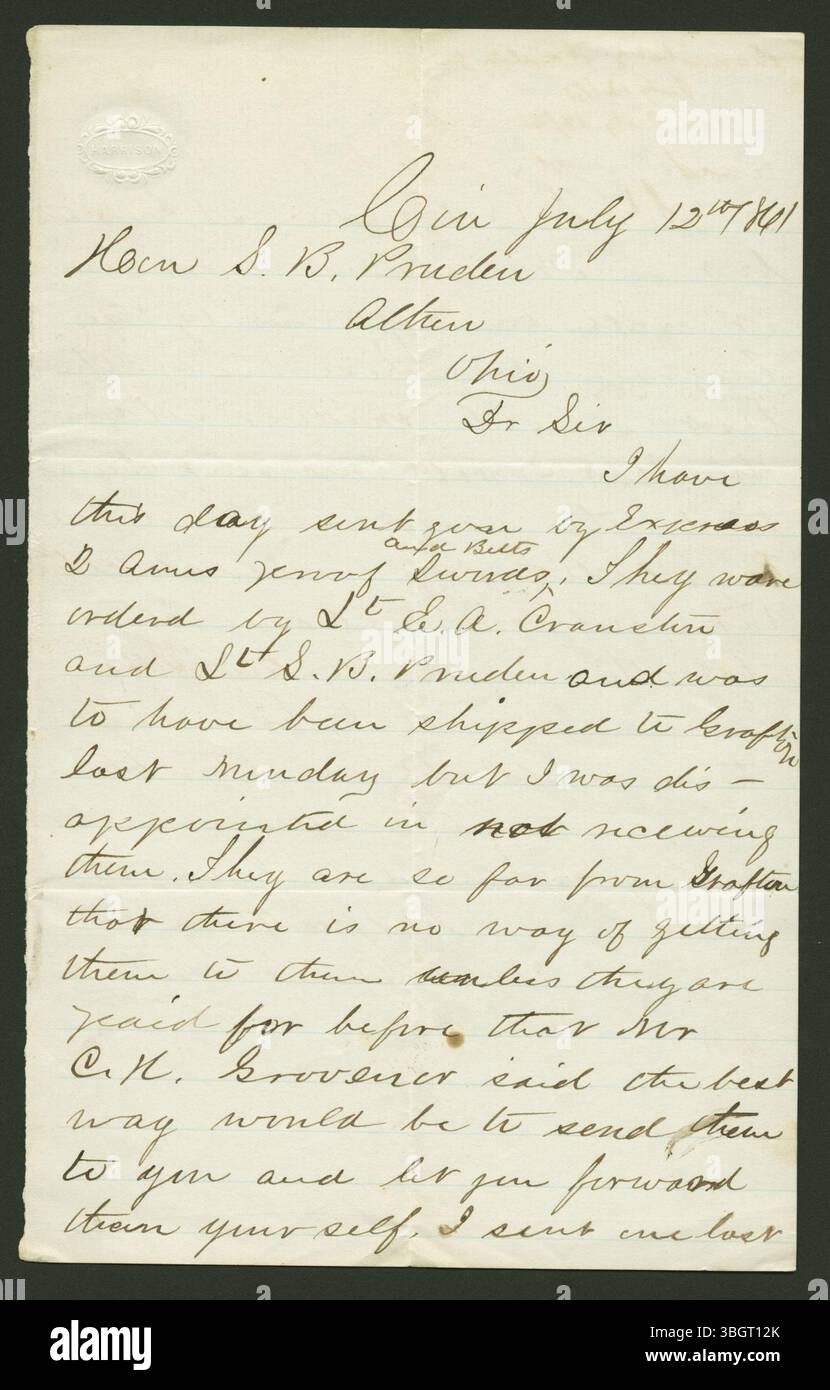 HARRISON
Cin July 12th/861
Hon S. B. Pruden
Athen
Ohio
Dr Sir
I have
this day sent you by Express
2 Ames proof Swords, and Belts. They ware
orderd by Lt E. A. Cranston
and Lt S. B. Pruden and was
to have been shipped to Grafton
last Munday but I was dis-
appointed in not receiving
them. They are so far from Grafton
that there is no way of getting
them to them unless they are
paid for before that Mr
C. H. Grovenor said the best
way would be to send them
to you and let you forward
them your self. I sent one last
a
alamy
Image ID: 3BGT12K
www.alamy.com